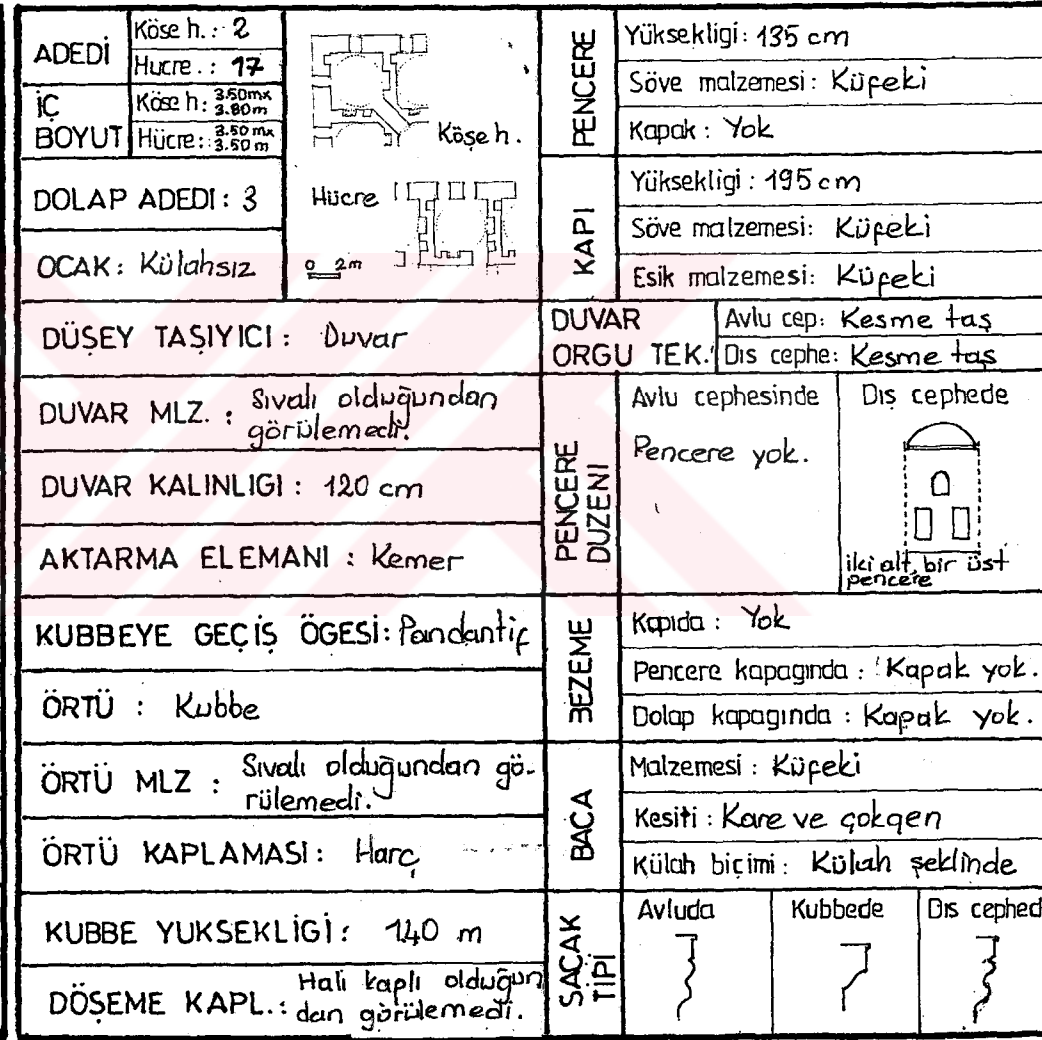 ADEDİ
Köse h.: 2
Hucre.: 17
İÇ BOYUT
Köse h: 3.50mx 3.80m
Hücre: 3.50mx 3.50m
DOLAP ADEDI: 3
OCAK: Külahsız
Köşe h.
Hücre
0 2m
DÜŞEY TAŞIYICI: Duvar
DUVAR MLZ.: Sıvalı olduğundan
görülemedi.
DUVAR KALINLIGI: 120 cm
AKTARMA ELEMANI: Kemer
KUBBEYE GEÇİŞ ÖGESİ: Pandantif
ÖRTÜ: Kubbe
ÖRTÜ MLZ: Sıvalı olduğundan gö-
rülemedi.
ÖRTÜ KAPLAMASI: Harç
KUBBE YUKSEKLİGİ: 1.40 m
DÖŞEME KAPL.: Halı kaplı olduğun
dan görülemedi.
PENCERE
Yüksekligi: 135 cm
Söve malzemesi: Küfeki
Kapak: Yok
KAPI
Yüksekligi: 195 cm
Söve malzemesi: Küfeki
Esik malzemesi: Küfeki
DUVAR
ORGU TEK.
Avlu cep: Kesme taş
Dıs cephe: Kesme taş
PENCERE
DUZENI
Avlu cephesinde
Pencere yok.
Dış cephede
iki alt, bir üst
pencere
BEZEME
Kapıda: Yok
Pencere kapagında: Kapak yok.
Dolap kapagında: Kapak yok.
BACA
Malzemesi: Küfeki
Kesiti: Kare ve çokgen
Külah biçimi: Külah şeklinde
SAÇAK
TİPİ
Avluda
Kubbede
Dıs cephed